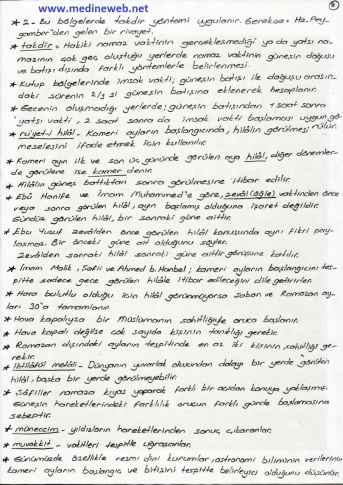 www.medineweb.net
* 2- Bu bölgelerde takdir yöntemi uygulanır. Gerekçe= Hz. Pey-
gamber'den gelen bir rivayet.
* takdir = Hakiki namaz vaktinin gerçekleşmediği ya da yatsı na-
mazının çok geç oluştuğu yerlerde namaz vaktinin güneşin doğuşu
ve batışı dışında farklı yöntemlerle belirlenmesi
* Kutup bölgelerinde imsak vakti; güneşin batışı ile doğuşu arasın-
daki sürenin 2/3 si güneşin batışına eklenerek hesaplanır.
* Gecenin oluşmadığı yerlerde; güneşin batışından 1 saat sonra
yatsı vakti, 2 saat sonra da imsak vakti başlaması uygun gö-
rülür.
* rü'yet-i hilâl - Kameri ayların başlangıcında, hilâlin görülmesi
meselesini ifade etmek için kullanılır.
* Kameri ayın ilk ve son üç gününde görülen aya hilâl, diğer dönemler-
de görülene ise kamer denir.
* Hilâlin güneş battıktan sonra görülmesine itibar edilir.
* Ebû Hanife ve İmam Muhammed'e göre, zevâl (öğle) vaktinden önce
veya sonra görülen hilâl, ayın başlamış olduğuna işaret değildir.
Gündüz görülen hilâl, bir sonraki güne aittir.
* Ebu Yusuf zevâlden önce görülen hilâl konusunda aynı fikri pay-
laşmaz. Bir önceki güne ait olduğunu söyler.
Zevâlden sonraki hilâl sonraki güne aittir görüşüne katılır.
* İmam Malik, Şafii ve Ahmed b. Hanbel; kameri ayların başlangıcını tes-
pitte sadece gece görülen hilâle itibar edileceğini dile getirirler.
* Hava bulutlu olduğu için hilâl görünmüyorsa Şaban ve Ramazan ay-
ları 30'a tamamlanır
* Hava kapalıysa bir Müslümanın şahitliğiyle oruca başlanır.
* Hava kapalı değilse çok sayıda kişinin tanıklığı gerekir.
* Ramazan dışındaki ayların tespitinde en az iki kişinin şahitliği ge-
rekir.
* ihtilâfü'l metâli - Dünyanın yuvarlak oluşundan dolayı bir yerde görülen
hilâl, başka bir yerde görülmeyebilir.
* Şâfiiler namaza kıyas yaparak farklı bir açıdan konuya yaklaşmış.
Güneşin hareketlerindeki farklılık orucun farklı günde başlamasına
sebeptir.
* müneccim - yıldızların hareketlerinden sonuç çıkaranlar.
* muvakkit - vakitleri tespitle uğraşanlar.
* Günümüzde özellikle resmi dini kurumlar, astronomi biliminin verilerinin
kameri ayların başlangıç ve bitişini tespitte belirleyici olduğunu düşünür.